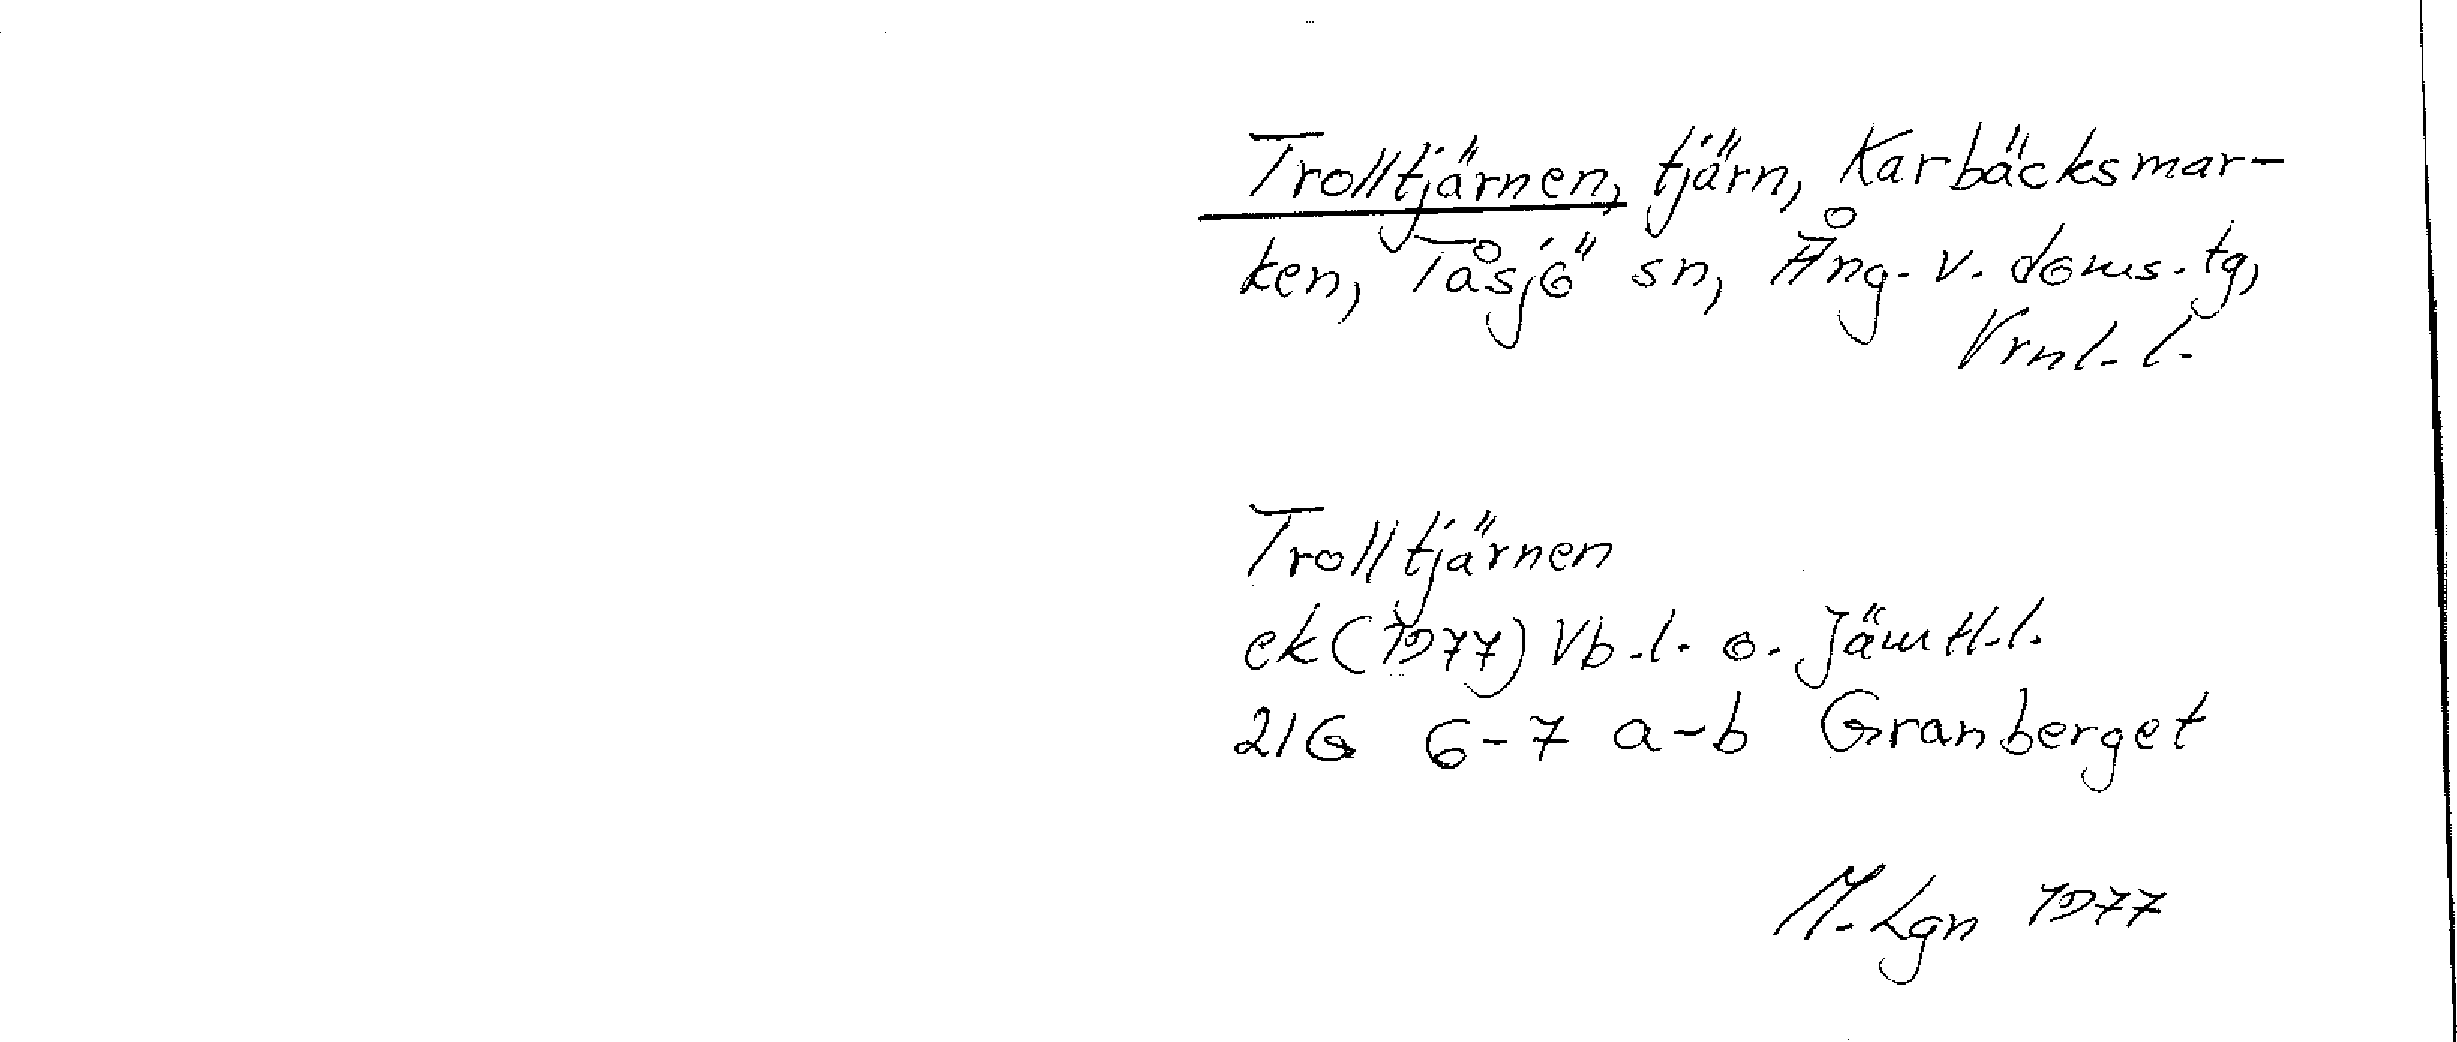 Trolltjärnen, tjärn, Karbäcksmar-
ken, Tåsjö sn, Ång. v. doms. tg,
Vrnl. l.
Trolltjärnen
ek (1977) Vb. l. o. Jämtl. l.
21G 6-7 a-b Granberget
M. Lgn 1977